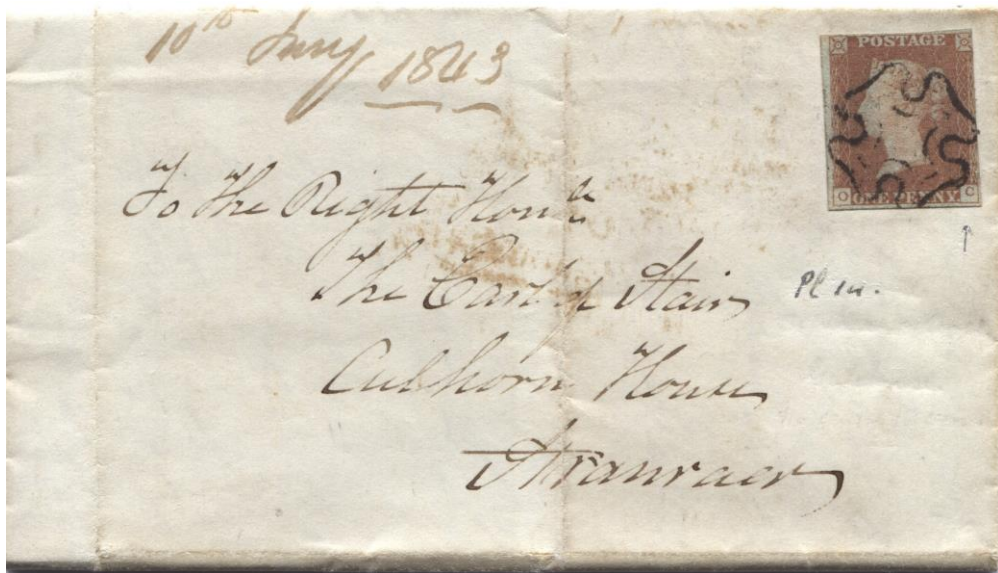 10th Jany 1843
POSTAGE
O ONE PENNY C
To The Right Honble
The Earl of Stair
Culhorn House
Stranraer